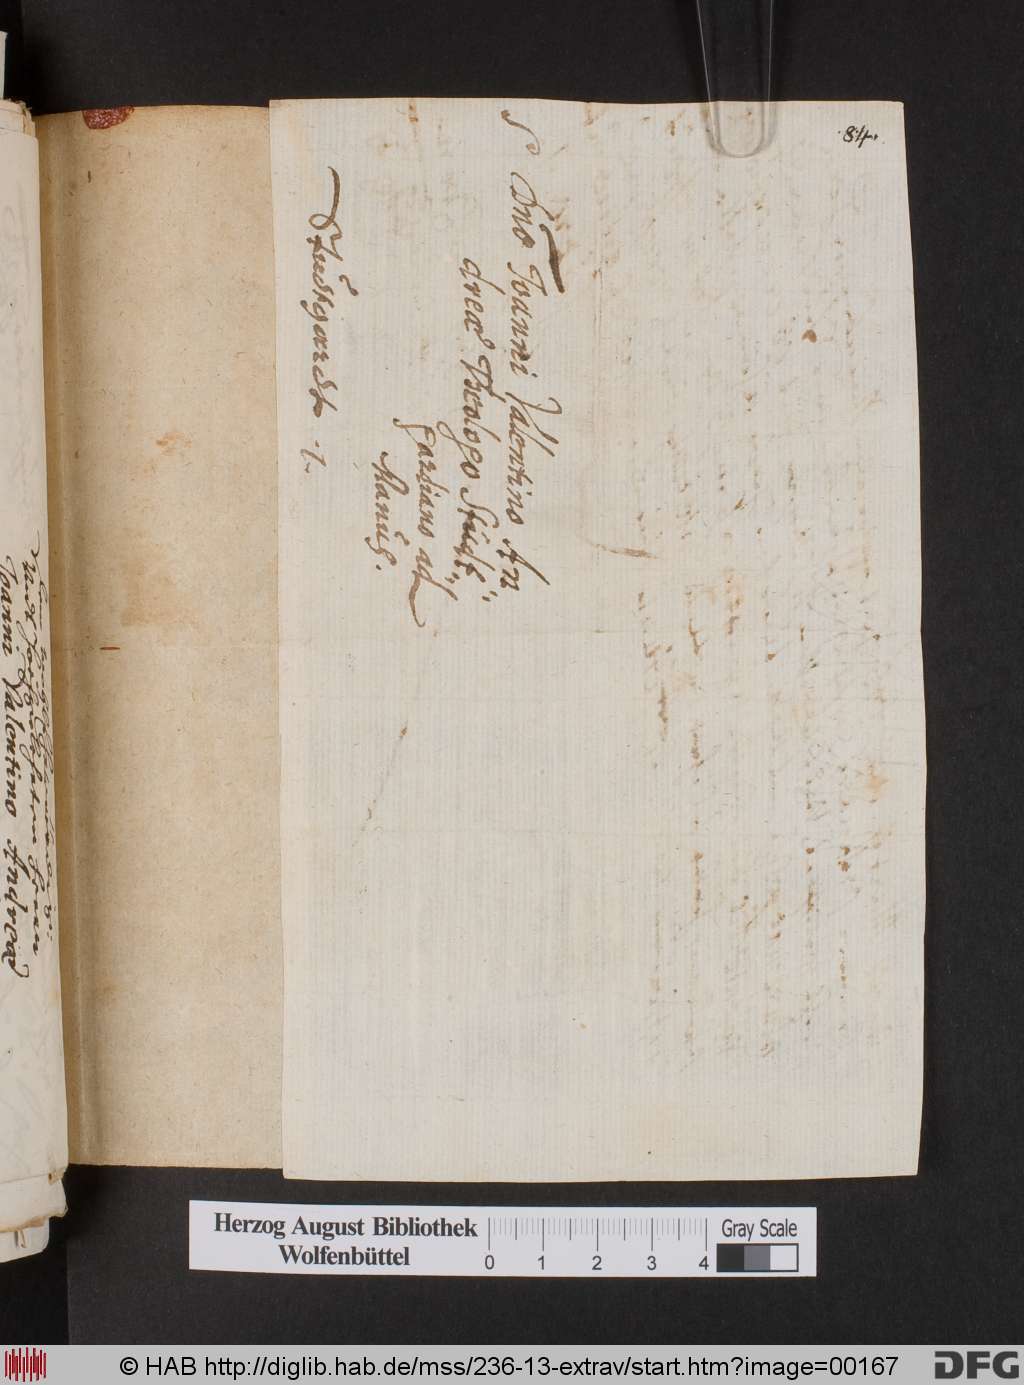 84.
Dno Joanni Valentino An
dreæ Theologo Stüdt=
gardiano ad
Manus.
Stuedtgardt. 1.
Joanni Valentino Andreæ
Herzog August Bibliothek
Wolfenbüttel
0 1 2 3 4
Gray Scale
© HAB http://diglib.hab.de/mss/236-13-extrav/start.htm?image=00167
DFG